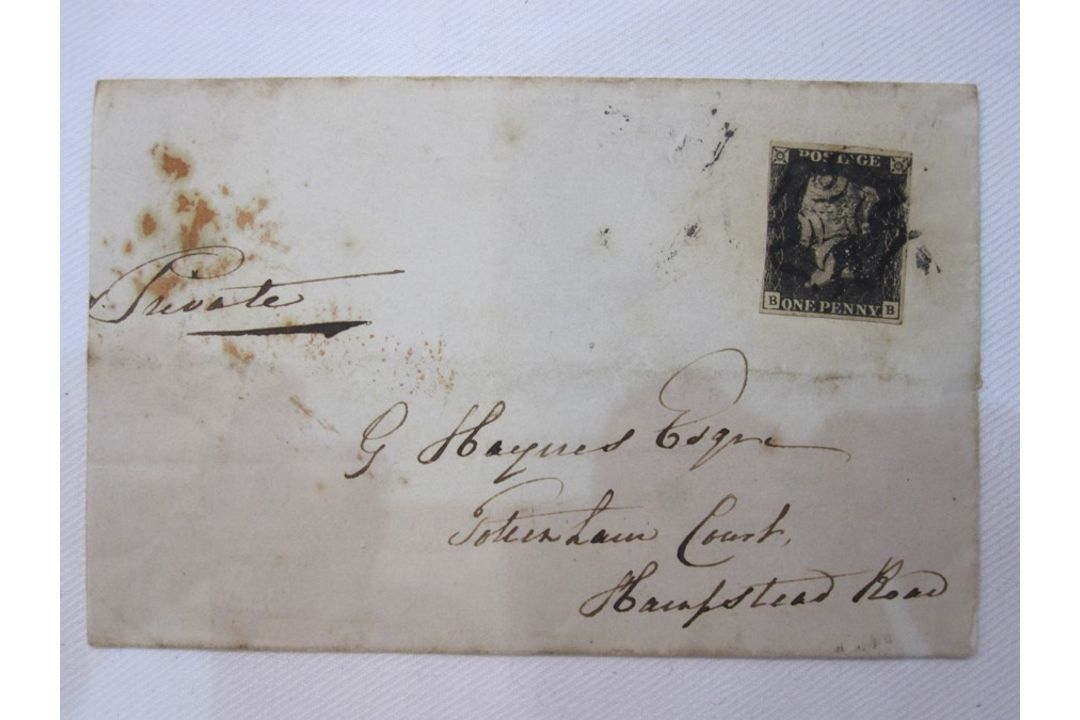 POSTAGE
B ONE PENNY B
Private
G Haynes Esqre
Totenham Court,
Hampstead Road